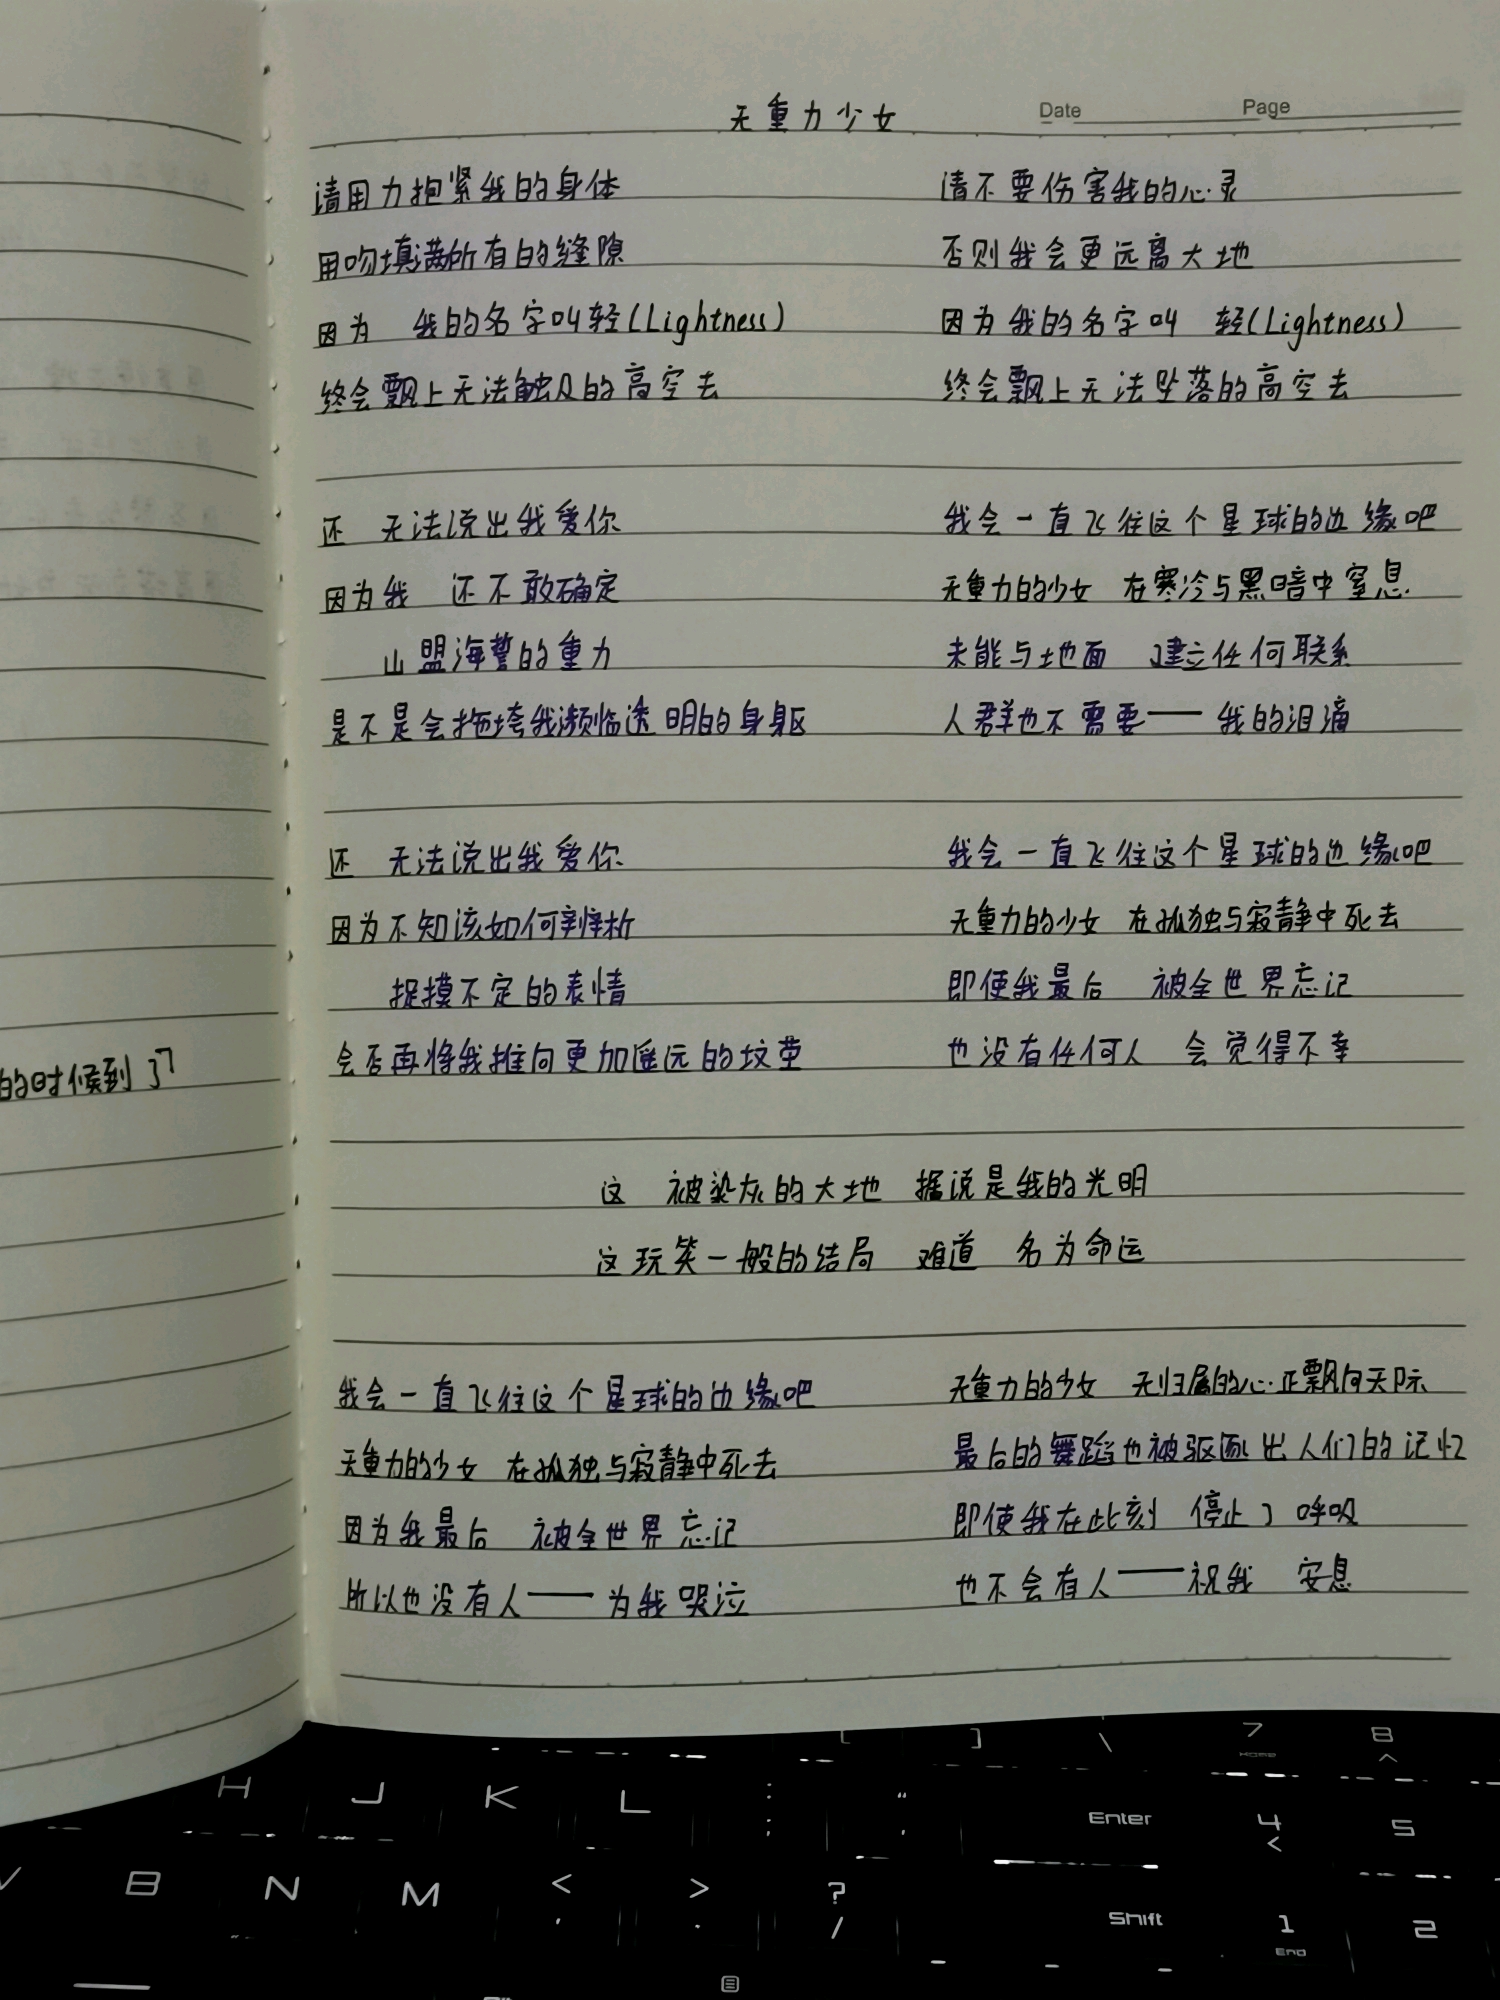 无重力少女
Date Page
请用力抱紧我的身体
用吻填满所有的缝隙
因为 我的名字叫轻(Lightness)
终会飘上无法触及的高空去
还 无法说出我爱你
因为我 还不敢确定
山盟海誓的重力
是不是会拖垮我濒临透明的身躯
还 无法说出我爱你
因为不知该如何辨析
捉摸不定的表情
会否再将我推向更加遥远的坟茔
请不要伤害我的心灵
否则我会更远离大地
因为我的名字叫 轻(Lightness)
终会飘上无法坠落的高空去
我会一直飞往这个星球的边缘吧
无重力的少女 在寒冷与黑暗中窒息
未能与地面 建立任何联系
人群也不需要——我的泪滴
我会一直飞往这个星球的边缘吧
无重力的少女 在孤独与寂静中死去
即使我最后 被全世界忘记
也没有任何人 会觉得不幸
这 被染灰的大地 据说是我的光明
这玩笑一般的结局 难道 名为命运
我会一直飞往这个星球的边缘吧
无重力的少女 在孤独与寂静中死去
因为我最后 被全世界忘记
所以也没有人——为我哭泣
无重力的少女 无归属的心正飘向天际
最后的舞蹈也被驱逐出人们的记忆
即使我在此刻 停止了呼吸
也不会有人——祝我 安息
的时候到了
[ ] \ 7 8
Home ^
H J K L : ; " ' Enter 4 < 5
V B N M < , > . ? / Shift 1 End 2